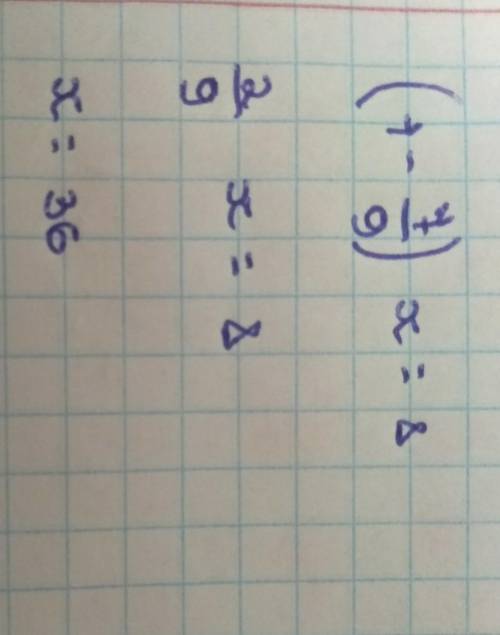 (1 - 7/9) x = 8
2/9 x = 8
x = 36